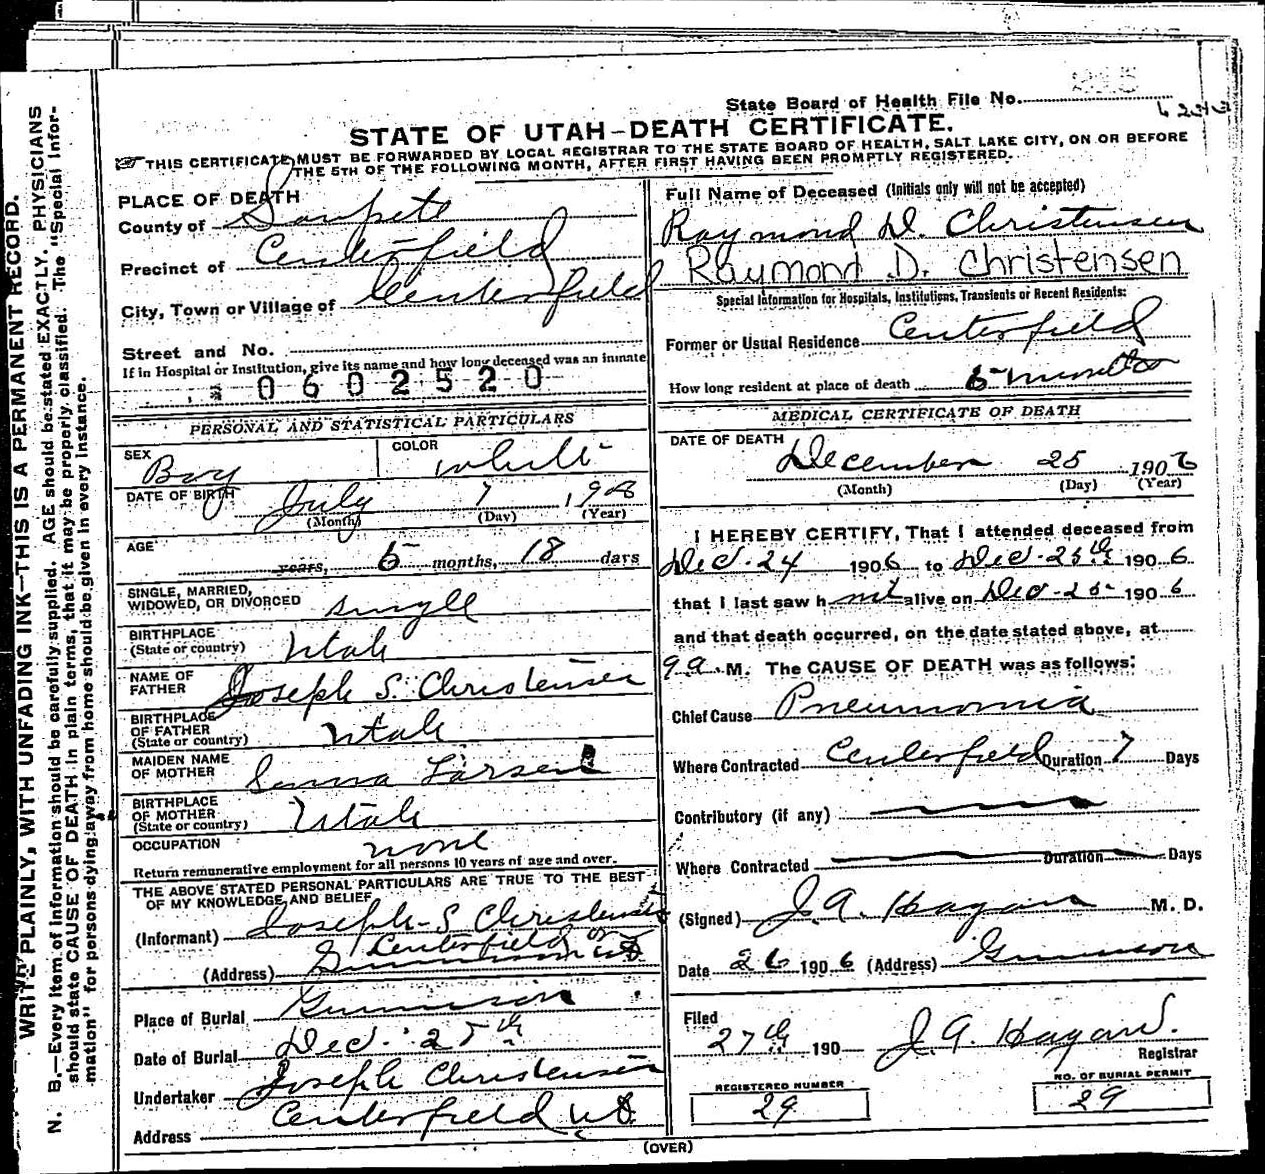 State Board of Health File No.
STATE OF UTAH-DEATH CERTIFICATE.
THIS CERTIFICATE MUST BE FORWARDED BY LOCAL REGISTRAR TO THE STATE BOARD OF HEALTH, SALT LAKE CITY, ON OR BEFORE
THE 5TH OF THE FOLLOWING MONTH, AFTER FIRST HAVING BEEN PROMPTLY REGISTERED.
WRITE PLAINLY, WITH UNFADING INK—THIS IS A PERMANENT RECORD.
N. B.—Every item of information should be carefully supplied. AGE should be stated EXACTLY. PHYSICIANS
should state CAUSE OF DEATH in plain terms, that it may be properly classified. The "Special Infor-
mation" for persons dying away from home should be given in every instance.
PLACE OF DEATH
County of Sanpete
Precinct of Centerfield
City, Town or Village of Centerfield
Street and No.
If in Hospital or Institution, give its name and how long deceased was an inmate
0602520
PERSONAL AND STATISTICAL PARTICULARS
SEX Boy COLOR white
DATE OF BIRTH July 7 190
(Month) (Day) (Year)
AGE years, 5 months, 18 days
SINGLE, MARRIED,
WIDOWED, OR DIVORCED single
BIRTHPLACE
(State or country) Utah
NAME OF
FATHER Joseph S. Christensen
BIRTHPLACE
OF FATHER
(State or country) Utah
MAIDEN NAME
OF MOTHER Larsen
BIRTHPLACE
OF MOTHER
(State or country) Utah
OCCUPATION none
Return remunerative employment for all persons 10 years of age and over.
THE ABOVE STATED PERSONAL PARTICULARS ARE TRUE TO THE BEST
OF MY KNOWLEDGE AND BELIEF
(Informant) Joseph S Christensen
Centerfield
(Address)
Place of Burial Gunnison
Date of Burial Dec. 25th
Undertaker Joseph Christensen
Address Centerfield
Full Name of Deceased (Initials only will not be accepted)
Raymond D. Christensen
Raymond D. Christensen
Special Information for Hospitals, Institutions, Transients or Recent Residents:
Former or Usual Residence Centerfield
How long resident at place of death 5 months
MEDICAL CERTIFICATE OF DEATH
DATE OF DEATH
December 25 1906
(Month) (Day) (Year)
I HEREBY CERTIFY, That I attended deceased from
Dec. 24 1906 to Dec. 25th 1906
that I last saw h alive on Dec. 25 1906
and that death occurred, on the date stated above, at
9 a. M. The CAUSE OF DEATH was as follows:
Chief Cause Pneumonia
Where Contracted Centerfield Duration 7 Days
Contributory (if any)
Where Contracted Duration Days
(Signed) J. A. Hagan M. D.
Date 26 1906 (Address) Gunnison
Filed
27th 190 J. A. Hagan.
Registrar
REGISTERED NUMBER
29
NO. OF BURIAL PERMIT
29
(OVER)